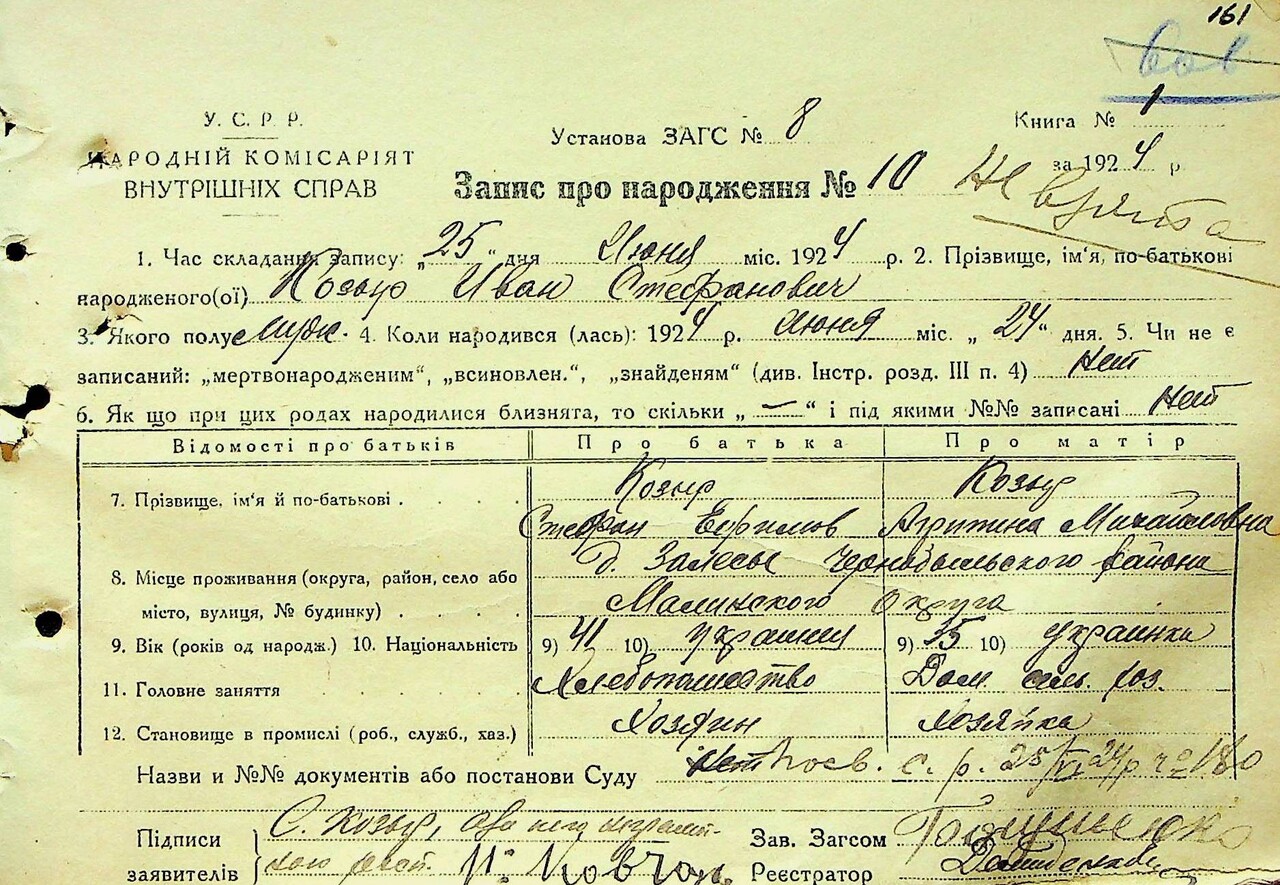 161
У. С. Р. Р.
НАРОДНІЙ КОМІСАРІЯТ
ВНУТРІШНІХ СПРАВ
Установа ЗАГС № 8
Книга № 1
за 1924 р
Запис про народження № 10
1. Час складання запису: „25“ дня Июня міс. 1924 р. 2. Прізвище, ім'я, по-батькові
народженого(ої) Козыр Иван Стефанович
3. Якого полу муж. 4. Коли народився (лась): 1924 р. июня міс. „24“ дня. 5. Чи не є
записаний: „мертвонародженим“, „всиновлен.“, „знайденям“ (див. Інстр. розд. III п. 4) Нет
6. Як що при цих родах народилися близнята, то скільки „—“ і під якими №№ записані Нет
Відомості про батьків Про батька Про матір
7. Прізвище, ім'я й по-батькові Козыр Козыр
Стефан Ефимов Агрипина Михайловна
д. Залесье Чернобыльского района
8. Місце проживання (округа, район, село або
місто, вулиця, № будинку) Малинского округа
9. Вік (років од народж.) 10. Національність 9) 41 10) украинец 9) 35 10) украинка
11. Головне заняття Хлебопашество Дом. сель. хоз.
12. Становище в промислі (роб., служб., хаз.) Хозяин Хозяйка
Назви и №№ документів або постанови Суду с. р. 25/VI 24 р № 180
Підписи
заявителів
С. Козыр, а за него неграмот-
Зав. Загсом
Реєстратор